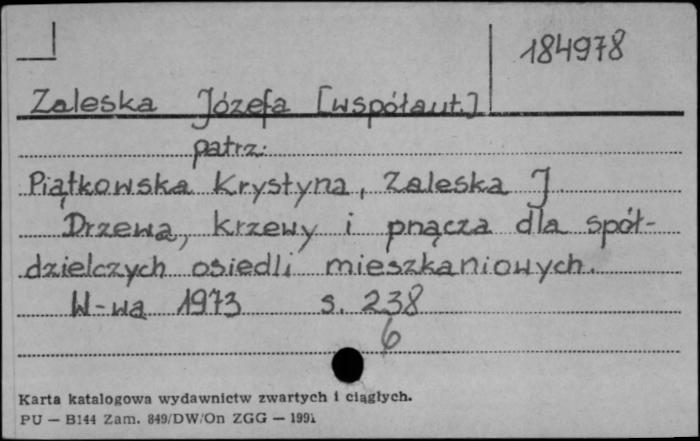 184978
Zaleska Józefa [współaut.]
patrz:
Piątkowska Krystyna, Zaleska J
Drzewa, krzewy i pnącza dla spół-
dzielczych osiedli mieszkaniowych.
W-wa 1973 s. 238
6
Karta katalogowa wydawnictw zwartych i ciągłych.
PU — B144 Zam. 849/DW/On ZGG — 1991